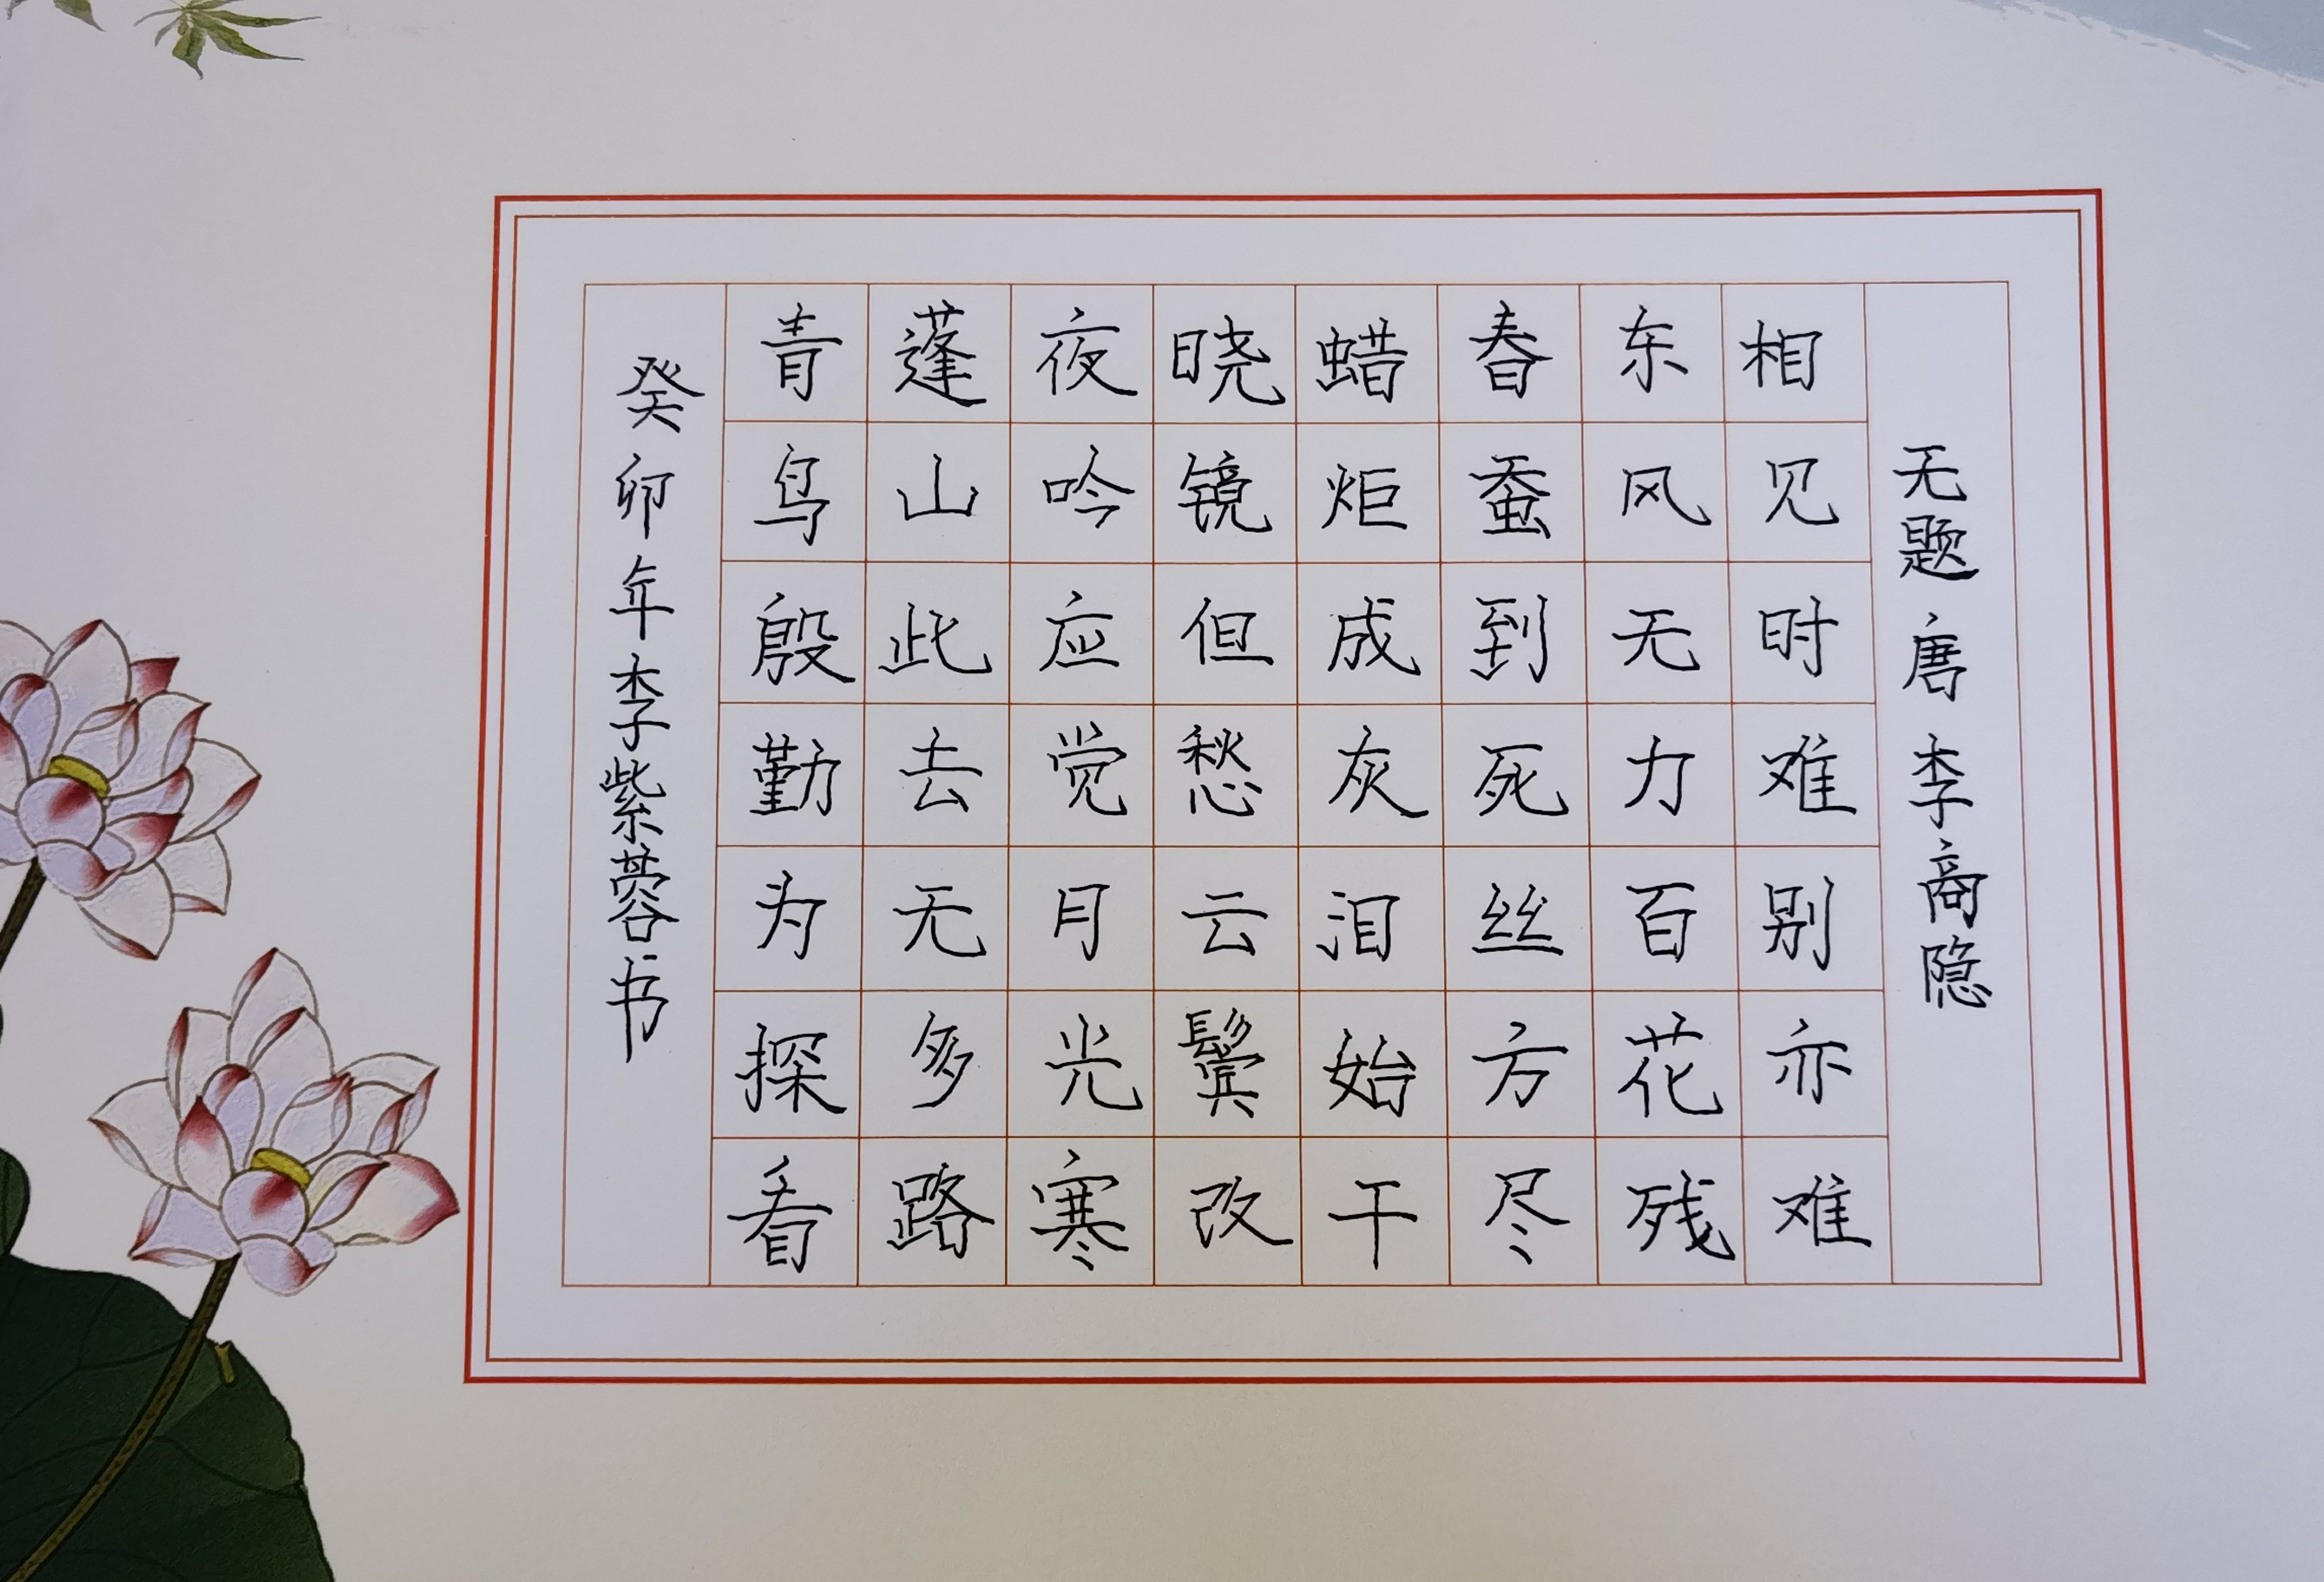 无题 唐 李商隐
相见时难别亦难
东风无力百花残
春蚕到死丝方尽
蜡炬成灰泪始干
晓镜但愁云鬓改
夜吟应觉月光寒
蓬山此去无多路
青鸟殷勤为探看
癸卯年李紫蓉书